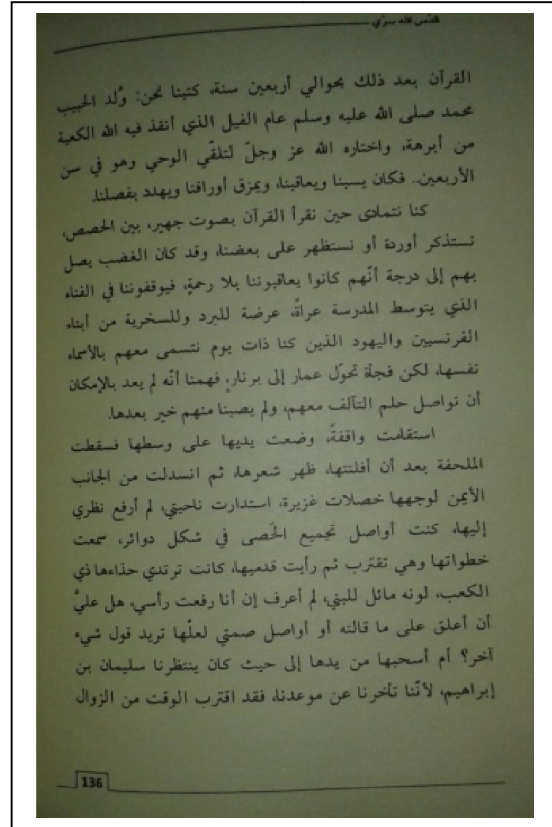 قدّس الله سرّي
القرآن بعد ذلك بحوالي أربعين سنة، كتبنا نحن: وُلد الحبيب
محمد صلى الله عليه وسلم عام الفيل الذي أنقذ فيه الله الكعبة
من أبرهة، واختاره الله عز وجلّ لتلقّي الوحي وهو في سن
الأربعين.. فكان يسبنا ويعاقبنا، ويمزق أوراقنا ويهدد بفصلنا.
كنا نتمادى حين نقرأ القرآن بصوت جهير، بين الحصص،
نستذكر أوردة أو نستظهر على بعضنا، وقد كان الغضب يصل
بهم إلى درجة أنّهم كانوا يعاقبوننا بلا رحمةٍ، فيوقفوننا في الفناء
الذي يتوسط المدرسة عراةً، عرضة للبرد وللسخرية من أبناء
الفرنسيين واليهود الذين كنا ذات يوم نتسمى معهم بالأسماء
نفسها، لكن فجأة تحوّل عمار إلى برنار، فهمنا أنّه لم يعد بالإمكان
أن نواصل حلم التآلف معهم، ولم يصبنا منهم خير بعدها.
استقامت واقفةً، وضعت يديها على وسطها فسقطت
الملحفة بعد أن أفلتتها، ظهر شعرها، ثم انسدلت من الجانب
الأيمن لوجهها خصلات غزيرة، استدارت ناحيتي، لم أرفع نظري
إليها، كنت أواصل تجميع الحَصى في شكل دوائر، سمعت
خطواتها وهي تقترب ثم رأيت قدميها، كانت ترتدي حذاءها ذي
الكعب، لونه مائل للبني، لم أعرف إن أنا رفعت رأسي، هل عليَّ
أن أعلق على ما قالته أو أواصل صمتي لعلّها تريد قول شيء
آخر؟ أم أسحبها من يدها إلى حيث كان ينتظرنا سليمان بن
إبراهيم، لأنّنا تأخرنا عن موعدنا، فقد اقترب الوقت من الزوال
136